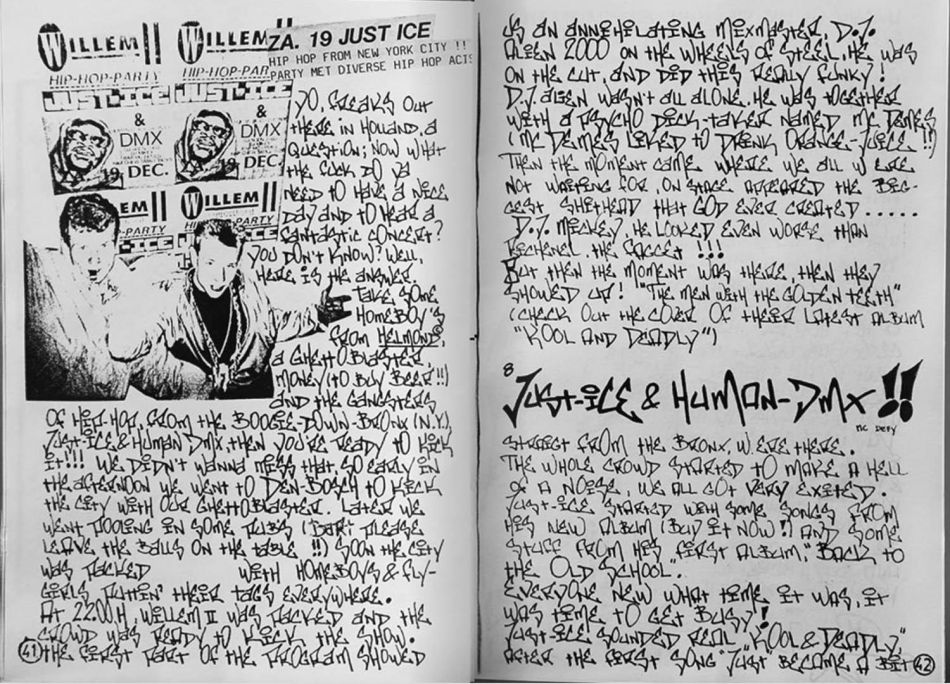 WILLEM II WILLEM
HIP-HOP-PARTY HIP-HOP-PAR
JUST-ICE JUST-ICE
& &
DMX DMX
19 DEC. 19 DEC.
EM II WILLEM II
-PARTY HIP
ZA. 19 JUST ICE
HIP HOP FROM NEW YORK CITY !!
PARTY MET DIVERSE HIP HOP ACTS
YO, FREAKS OUT
THERE IN HOLLAND, A
QUESTION; NOW WHAT
THE FUCK DO YA
NEED TO HAVE A NICE
DAY AND TO HEAR A
FANTASTIC CONCERT?
YOU DON'T KNOW? WELL,
HERE IS THE ANSWER.
TAKE SOME
HOMEBOY'S
FROM HELMOND,
A GHETTOBLASTER,
MONEY (TO BUY BEER!!)
AND THE GANGSTERS
OF HIP-HOP, FROM THE BOOGIE-DOWN-BRONX (N.Y.),
JUST-ICE & HUMAN DMX, THEN YOU'RE READY TO KICK
IT!!! WE DIDN'T WANNA MISS THAT, SO EARLY IN
THE AFTERNOON WE WENT TO DEN-BOSCH TO KICK
THE CITY WITH OUR GHETTOBLASTER. LATER WE
WENT POOLING IN SOME PUBS (BART PLEASE
LEAVE THE BALLS ON THE TABLE !!) SOON THE CITY
WAS PACKED WITH HOMEBOYS & FLY-
GIRLS PUTTIN' THEIR TAGS EVERYWHERE.
AT 22.00 H, WILLEM II WAS PACKED AND THE
CROWD WAS READY TO KICK THE SHOW.
THE FIRST PART OF THE PROGRAM SHOWED
41
US AN ANNIHILATING MIXMASTER, D.J.
ALIEN 2000 ON THE WHEELS OF STEEL. HE WAS
ON THE CUT, AND DID THIS REALLY FUNKY!
D.J. ALIEN WASN'T ALL ALONE. HE WAS TOGETHER
WITH A PSYCHO DICK-TAKER NAMED MC DEMES
(MC DEMES LIKED TO DRINK ORANGE-JUICE !!)
THEN THE MOMENT CAME WHERE WE ALL WERE
NOT WAITING FOR, ON STAGE APPEARED THE BIG-
GEST SHITHEAD THAT GOD EVER CREATED.....
D.J. MICKEY. HE LOOKED EVEN WORSE THAN
RICHENEL THE FAGGET !!!
BUT THEN THE MOMENT WAS THERE, THEN THEY
SHOWED UP! "THE MEN WITH THE GOLDEN TEETH"
(CHECK OUT THE COVER OF THEIR LATEST ALBUM
"KOOL AND DEADLY")
8 JUST-ICE & HUMAN-DMX !!
MC DEFY
STRAIGT FROM THE BRONX, WERE HERE.
THE WHOLE CROWD STARTED TO MAKE A HELL
OF A NOISE, WE ALL GOT VERY EXITED.
JUST-ICE STARTED WITH SOME SONGS FROM
HIS NEW ALBUM (BUY IT NOW!) AND SOME
STUFF FROM HIS FIRST ALBUM, "BACK TO
THE OLD SCHOOL".
EVERYONE NEW WHAT TIME IT WAS, IT
WAS TIME TO GET BUSY!
JUST-ICE SOUNDED REAL "KOOL & DEADLY,"
AFTER THE FIRST SONG "JUST" BECAME A BIT
42